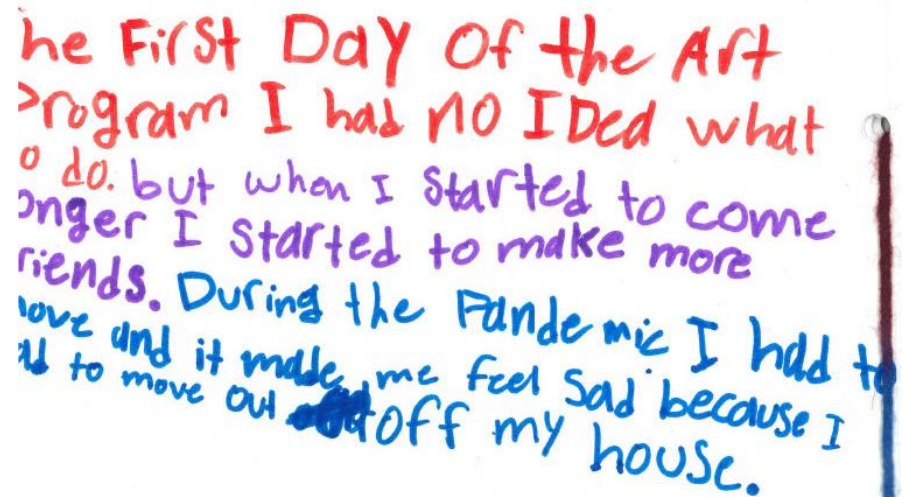 he First Day Of the Art
Program I had NO IDea what
o do. but when I started to come
onger I started to make more
riends. During the Pandemic I had to
ove and it made me feel Sad because I
ad to move out off my house.